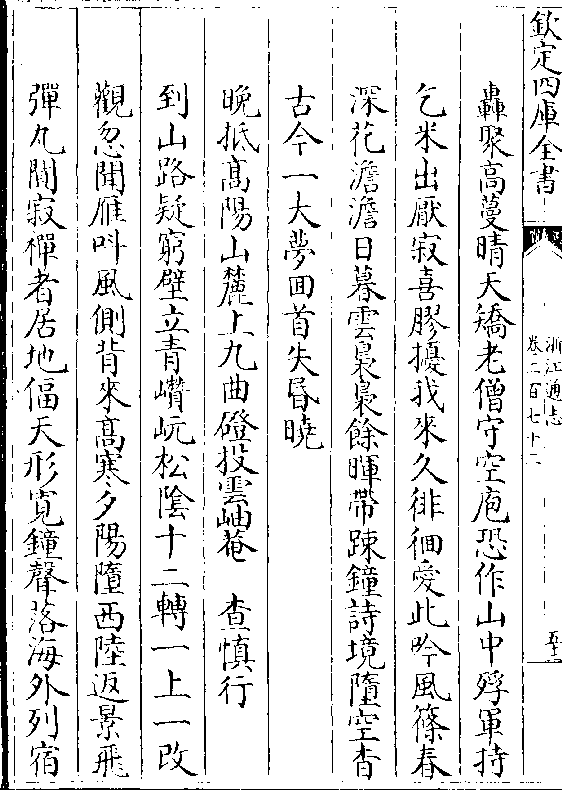 欽定四庫全書
浙江通志
卷二百七十二
五十二
轟聚高蔓晴天矯老僧守空庖恐作山中殍軍持
乞米出厭寂喜膠擾我來久徘徊愛此吟風篠春
深花澹澹日暮雲裊裊餘暉帶踈鐘詩境墮空杳
古今一大夢回首失昏曉
晚抵高陽山麓上九曲磴投雲岫菴　查慎行
到山路疑窮壁立青巑岏松陰十二轉一上一改
觀忽聞雁叫風側背來高寒夕陽墮西陸返景飛
彈丸闃寂禪者居地偪天形寛鐘聲落海外列宿